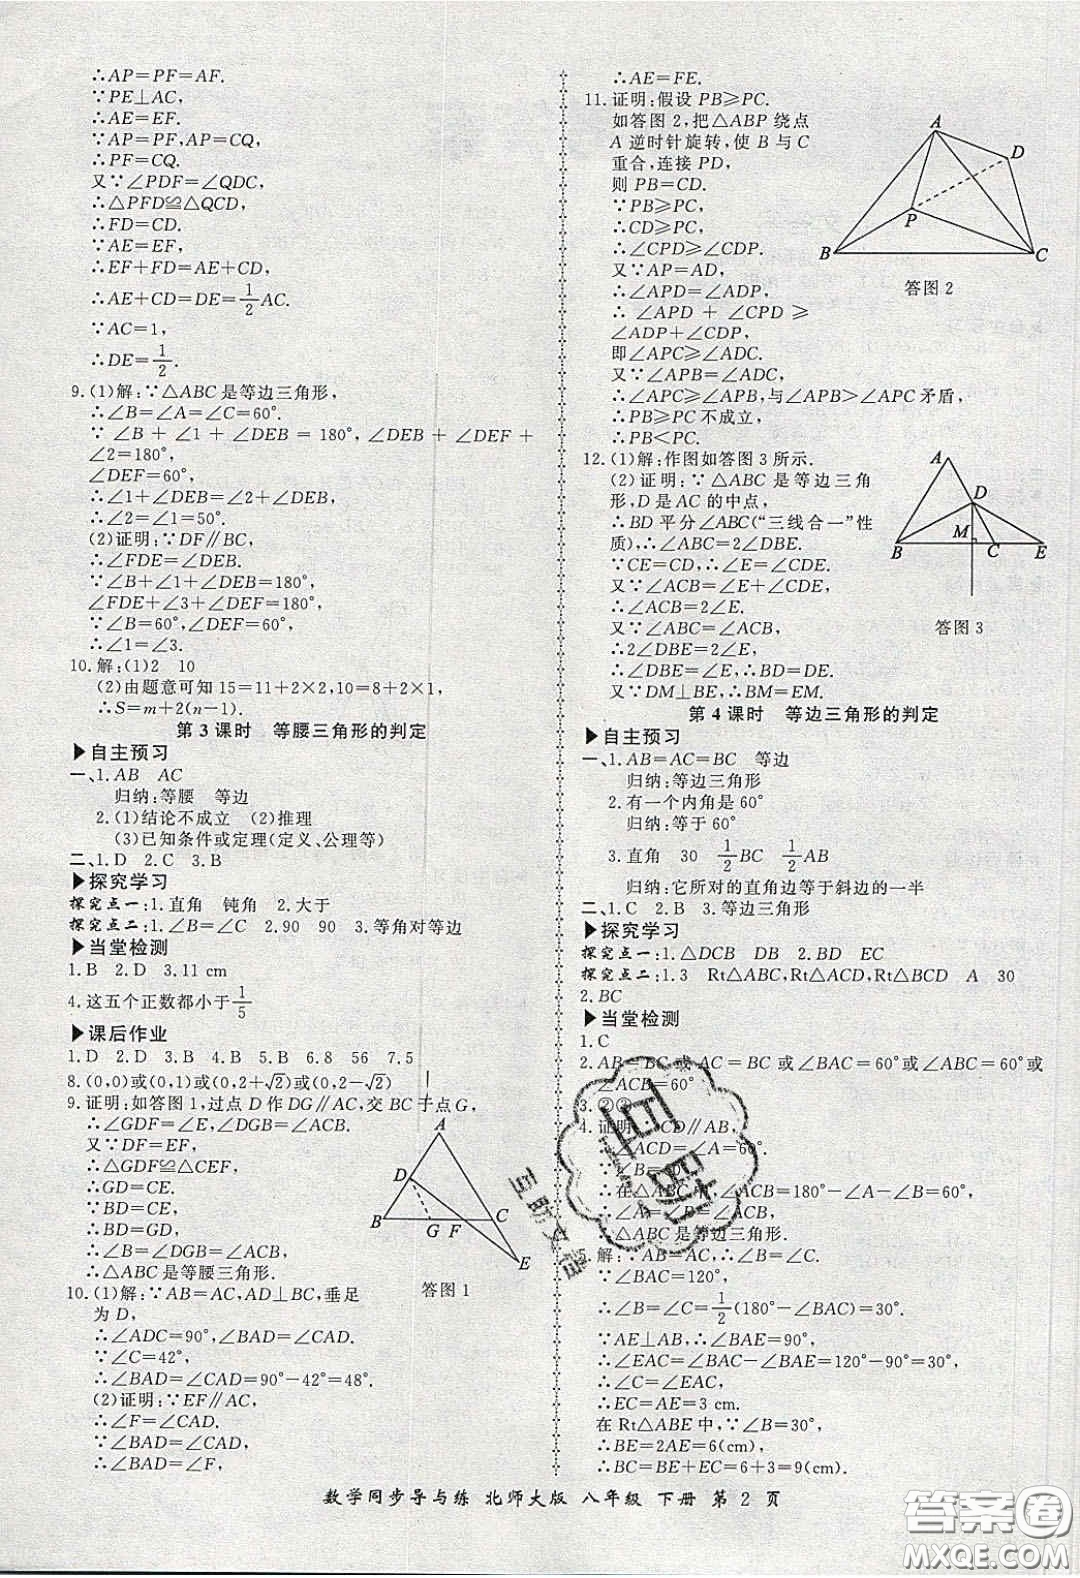 ∴AP=PF=AF.
∵PE⊥AC,
∴AE=EF.
∵AP=PF,AP=CQ.
∴PF=CQ.
又∵∠PDF=∠QDC,
∴△PFD≌△QCD,
∴FD=CD.
∵AE=EF,
∴EF+FD=AE+CD,
∴AE+CD=DE=1/2AC.
∵AC=1,
∴DE=1/2.
9.(1)解:∵△ABC是等边三角形,
∴∠B=∠A=∠C=60°.
∵∠B+∠1+∠DEB=180°,∠DEB+∠DEF+
∠2=180°,
∠DEF=60°,
∴∠1+∠DEB=∠2+∠DEB,
∴∠2=∠1=50°.
(2)证明:∵DF∥BC,
∴∠FDE=∠DEB.
∵∠B+∠1+∠DEB=180°,
∠FDE+∠3+∠DEF=180°,
∵∠B=60°,∠DEF=60°,
∴∠1=∠3.
10.解:(1)2 10
(2)由题意可知15=11+2×2,10=8+2×1,
∴S=m+2(n-1).
第3课时 等腰三角形的判定
▶自主预习
一、1.AB AC
归纳:等腰 等边
2.(1)结论不成立 (2)推理
(3)已知条件或定理(定义、公理等)
二、1.D 2.C 3.B
▶探究学习
探究点一:1.直角 钝角 2.大于
探究点二:1.∠B=∠C 2.90 90 3.等角对等边
▶当堂检测
1.B 2.D 3.11 cm
4.这五个正数都小于1/5
▶课后作业
1.D 2.D 3.B 4.B 5.B 6.8 56 7.5
8.(0,0)或(0,1)或(0,2+√2)或(0,2-√2)
9.证明:如答图1,过点D作DG∥AC,交BC于点G,
∴∠GDF=∠E,∠DGB=∠ACB.
又∵DF=EF,
∴△GDF≌△CEF,
∴GD=CE.
∵BD=CE,
∴BD=GD,
∴∠B=∠DGB=∠ACB.
∴△ABC是等腰三角形.
A
D
B
G
F
C
E
答图1
10.(1)解:∵AB=AC,AD⊥BC,垂足
为D,
∴∠ADC=90°,∠BAD=∠CAD.
∵∠C=42°,
∴∠BAD=∠CAD=90°-42°=48°.
(2)证明:∵EF∥AC,
∴∠F=∠CAD.
∵∠BAD=∠CAD,
∴∠BAD=∠F,
∴AE=FE.
11.证明:假设PB≥PC.
如答图2,把△ABP绕点
A逆时针旋转,使B与C
重合,连接PD,
则PB=CD.
∵PB≥PC,
∴CD≥PC,
∴∠CPD≥∠CDP.
又∵AP=AD,
∴∠APD=∠ADP,
∴∠APD+∠CPD≥
∠ADP+∠CDP,
即∠APC≥∠ADC.
又∵∠APB=∠ADC,
∴∠APC≥∠APB,与∠APB>∠APC矛盾,
∴PB≥PC不成立,
∴PB<PC.
A
D
P
B
C
答图2
12.(1)解:作图如答图3所示.
(2)证明:∵△ABC是等边三角
形,D是AC的中点,
∴BD平分∠ABC(“三线合一”性
质),∴∠ABC=2∠DBE.
∵CE=CD,∴∠E=∠CDE.
又∵∠ACB=∠E+∠CDE,
∴∠ACB=2∠E.
又∵∠ABC=∠ACB,
∴2∠DBE=2∠E,
∴∠DBE=∠E,∴BD=DE.
又∵DM⊥BE,∴BM=EM.
A
D
M
B
C
E
答图3
第4课时 等边三角形的判定
▶自主预习
一、1.AB=AC=BC 等边
归纳:等边三角形
2.有一个内角是60°
归纳:等于60°
3.直角 30 1/2BC 1/2AB
归纳:它所对的直角边等于斜边的一半
二、1.C 2.B 3.等边三角形
▶探究学习
探究点一:1.△DCB DB 2.BD EC
探究点二:1.3 Rt△ABC,Rt△ACD,Rt△BCD A 30
2.BC
▶当堂检测
1.C
2.AB=BC或AC=BC或∠BAC=60°或∠ABC=60°或
∠ACB=60°
3.②③
4.证明:∵CD∥AB,
∴∠ACD=∠A=60°.
∵∠B=
∴在△ABC中,∠ACB=180°-∠A-∠B=60°,
∴∠A=∠B=∠ACB.
∴△ABC是等边三角形.
5.解:∵AB=AC,∴∠B=∠C.
∵∠BAC=120°,
∴∠B=∠C=1/2(180°-∠BAC)=30°.
∵AE⊥AB,∴∠BAE=90°,
∴∠EAC=∠BAC-∠BAE=120°-90°=30°,
∴∠C=∠EAC,
∴EC=AE=3 cm.
在Rt△ABE中,∵∠B=30°,
∴BE=2AE=6(cm),
∴BC=BE+EC=6+3=9(cm).
数学同步导与练 北师大版 八年级 下册 第2页
答案圈
MXQE.COM